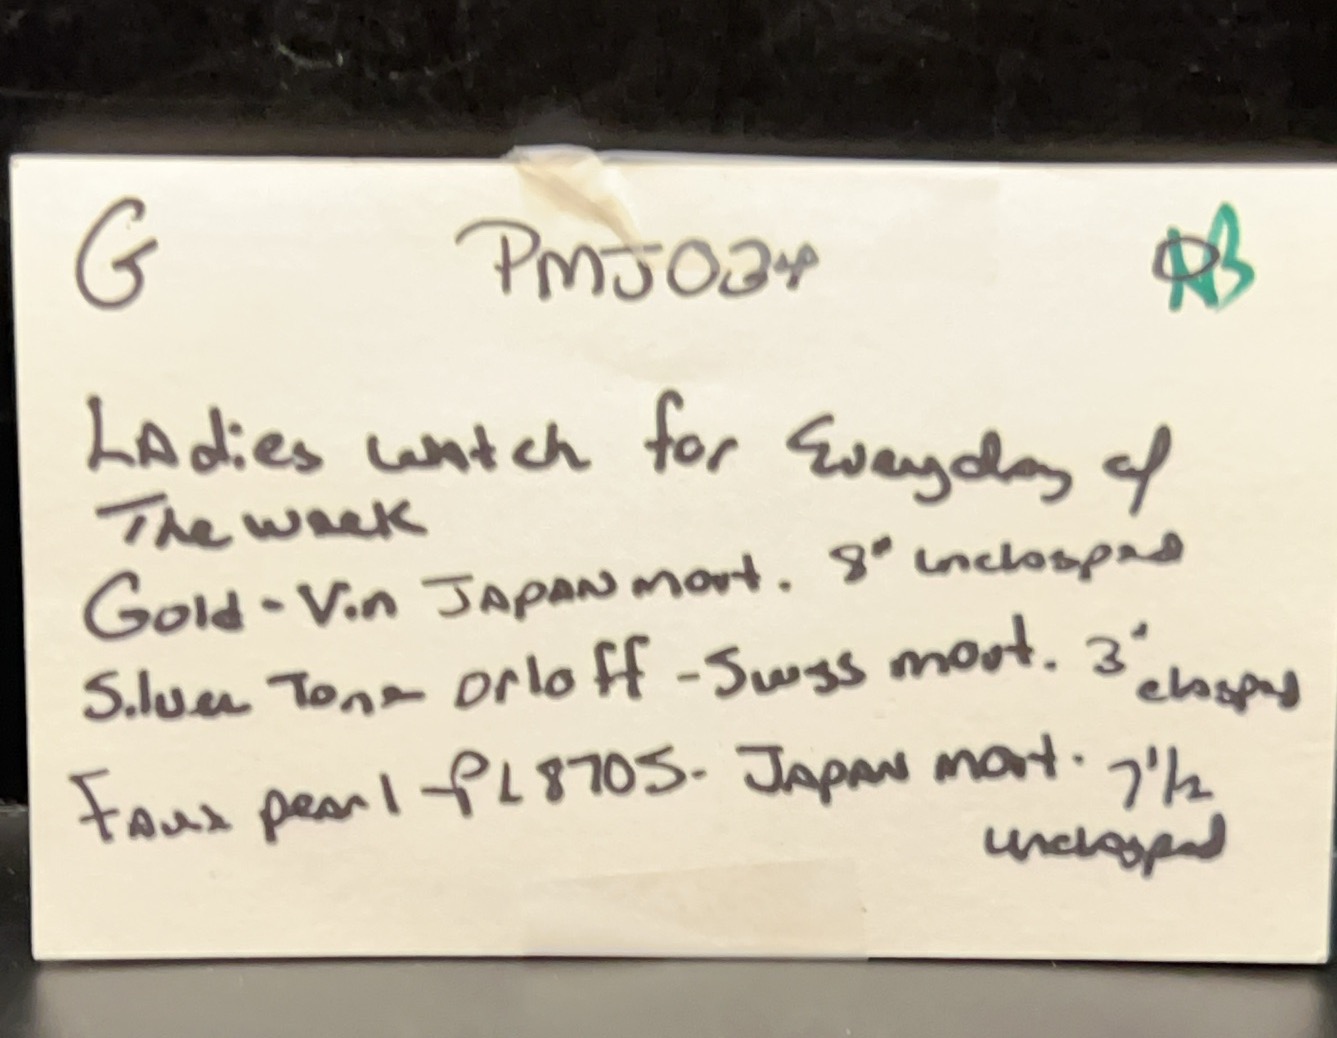 G PMJ024 NB
Ladies watch for Everyday of
The week
Gold - Vin JAPAN movt. 8" unclasped
Silver Tone Orloff - Swiss movt. 3" clasped
Faux pearl - PL8705 - JAPAN movt. 7 1/2
unclasped